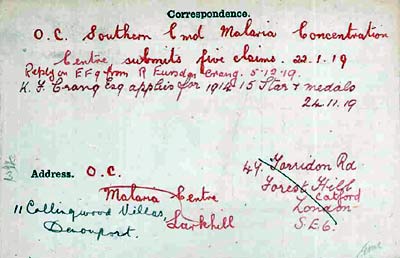 Correspondence.
O.C. Southern Cmd Malaria Concentration
Centre submits five claims. 22.1.19
Reply on EF9 from R Eusdn Crang. 5.12.19.
K. J. Crang Esq applies for 1914-15 Star & medals
24.11.19
Address. O.C.
Malaria Centre
Larkhill
11 Collingwood Villas,
Devonport.
49 Torridon Rd
Forest Hill
Catford
London
S.E.6.